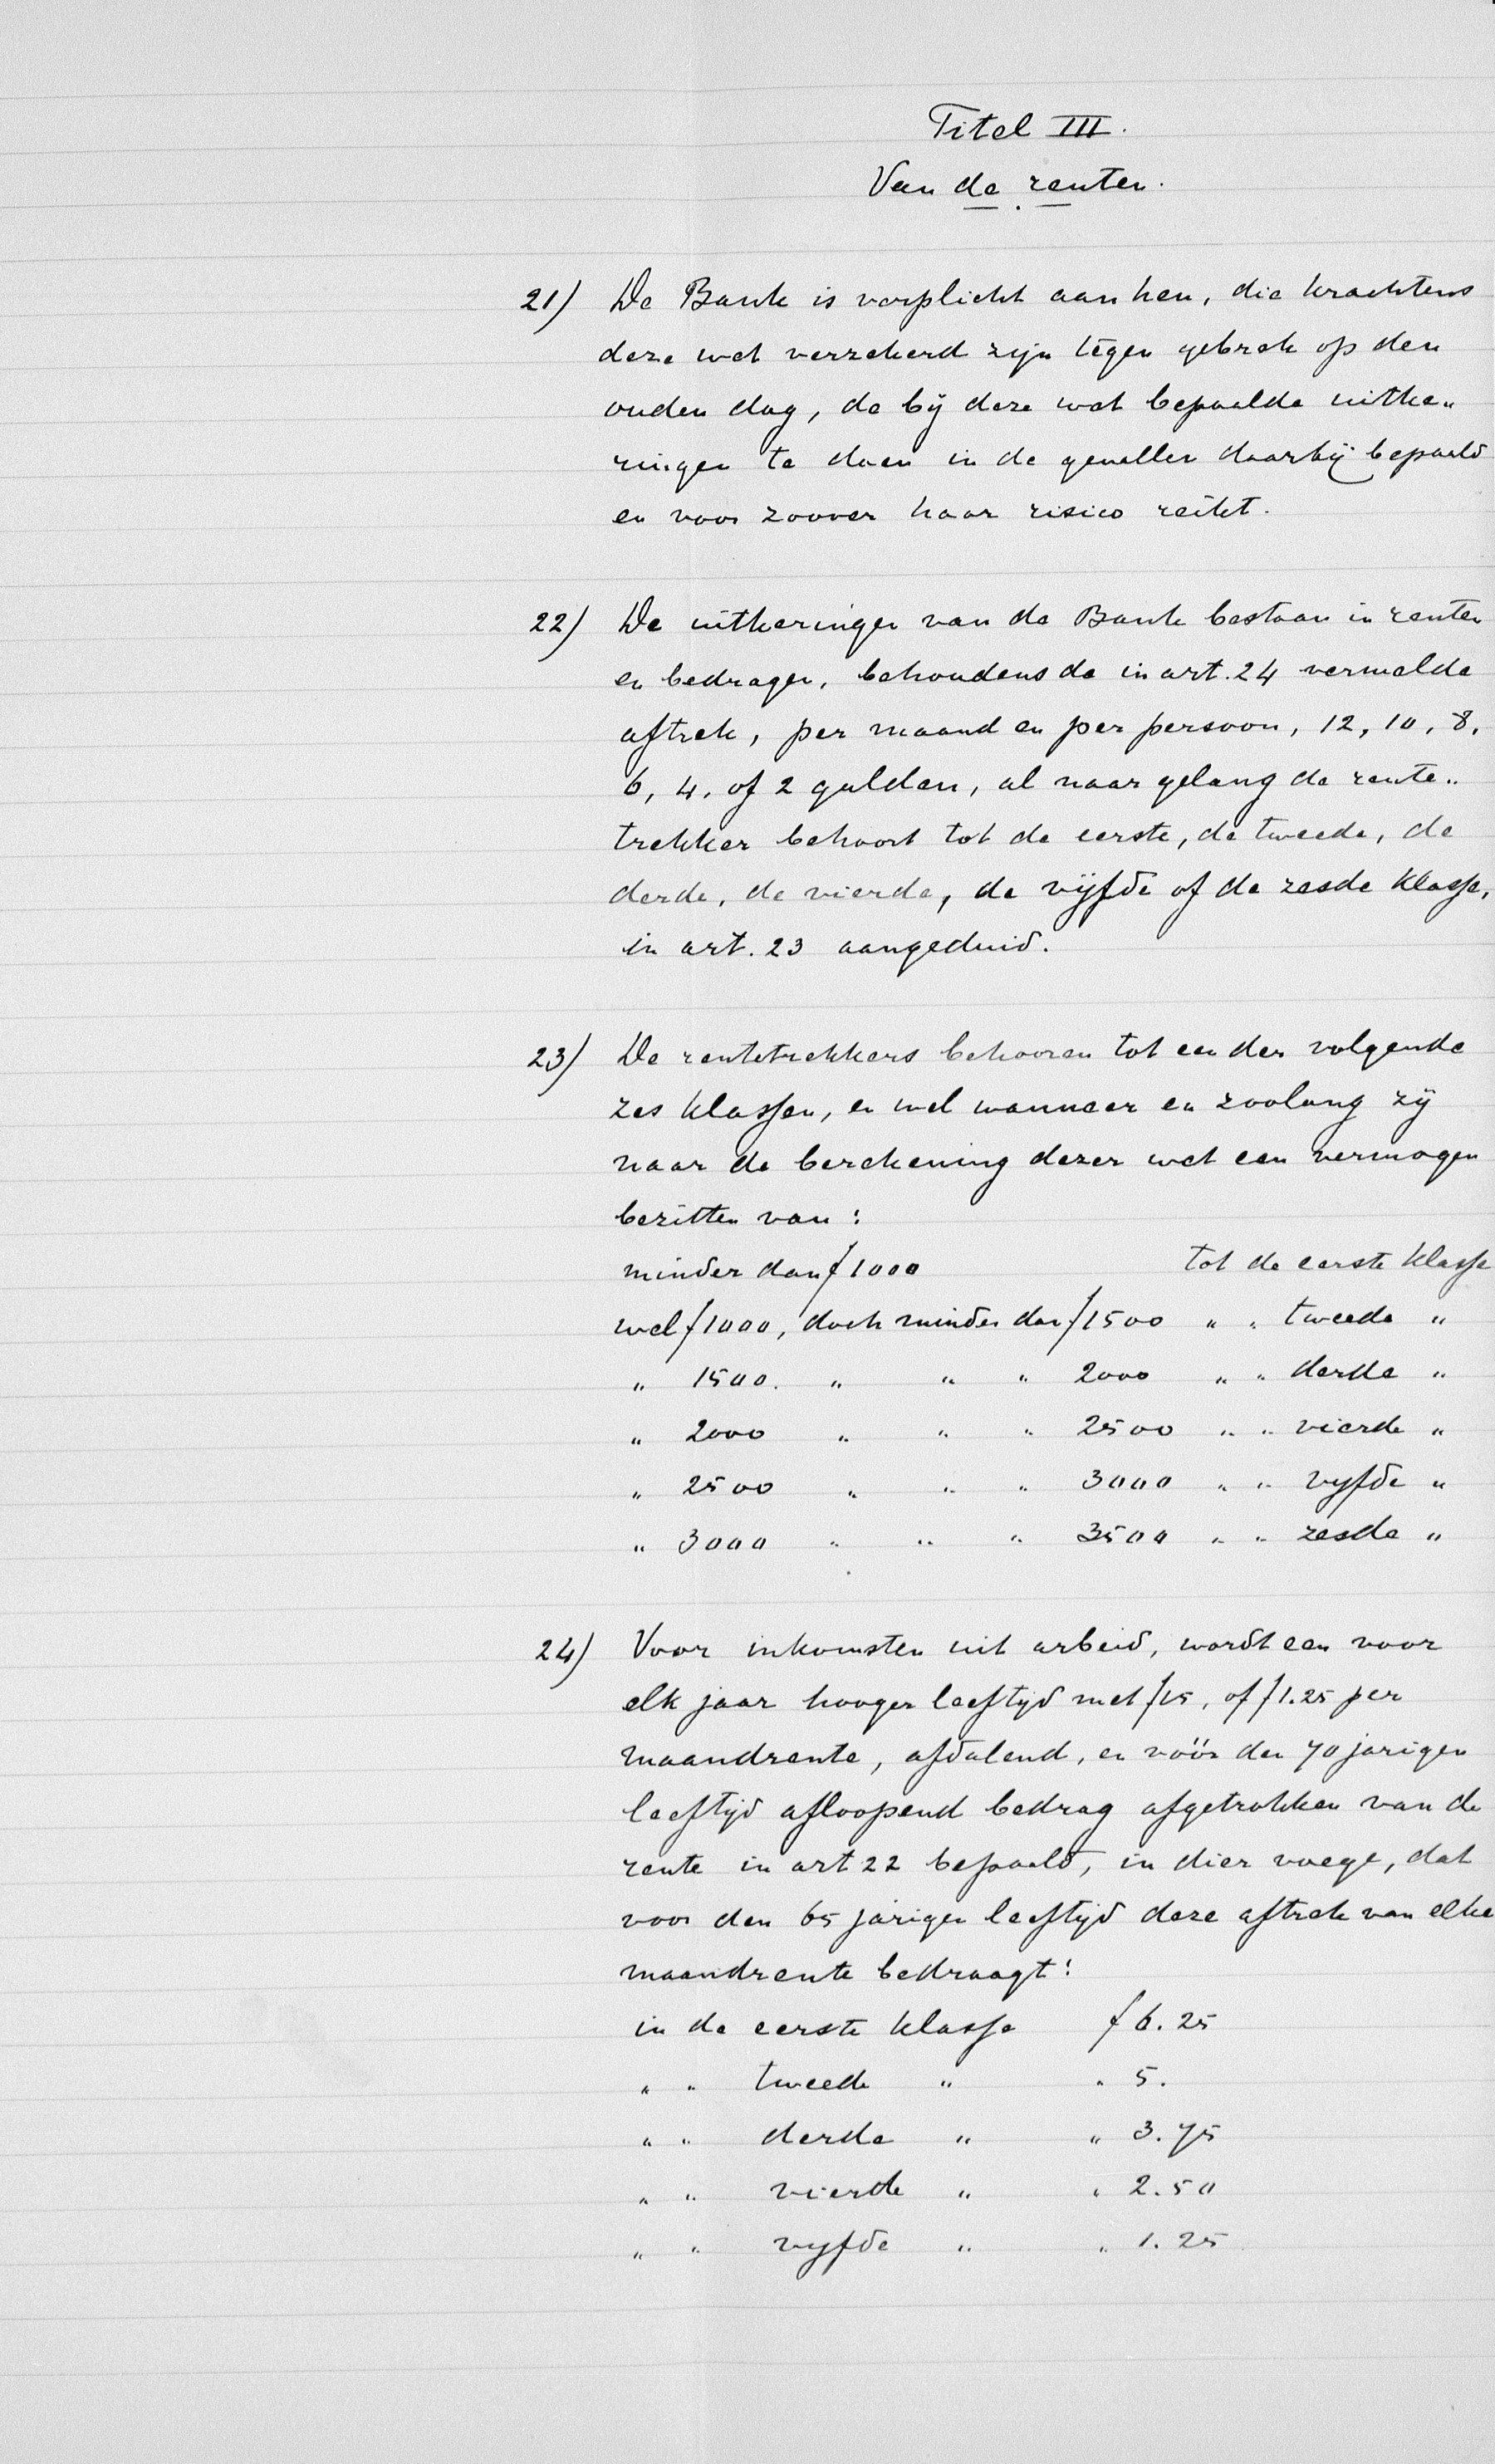 Titel III.
Van de renten.
21) De Bank is verplicht aan hen, die krachtens
deze wet verzekerd zijn tegen gebrek op den
ouden dag, de bij deze wet bepaalde uitke„
ringen te doen in de gevallen daarbij bepaald
en voor zoover haar risico reikt.
22) De uitkeringen van de Bank bestaan in renten
en bedragen, behoudens de in art. 24 vermelde
aftrek, per maand en per persoon, 12, 10, 8,
6, 4, of 2 gulden, al naar gelang de rente„
trekker behoort tot de eerste, de tweede, de
derde, de vierde, de vijfde of de zesde klasse,
in art. 23 aangeduid.
23) De rentetrekkers behooren tot een der volgende
zes klassen, en wel wanneer en zoolang zij
naar de berekening dezer wet een vermogen
bezitten van:
minder dan ƒ1000 tot de eerste klasse
wel ƒ1000, doch minder dan ƒ1500 „ „ tweede „
„ 1500. „ „ „ 2000 „ „ derde „
„ 2000 „ „ „ 2500 „ „ vierde „
„ 2500 „ „ „ 3000 „ „ vyfde „
„ 3000 „ „ „ 3500 „ „ zesde „
24) Voor inkomsten uit arbeid, wordt een voor
elk jaar hooger leeftijd met ƒ15, of ƒ1.25 per
maandrente, afdalend, en vóór den 70 jarigen
leeftijd afloopend bedrag afgetrokken van de
rente in art 22 bepaald, in dier voege, dat
voor den 65 jarigen leeftijd deze aftrek van elke
maandrente bedraagt:
in de eerste klasse ƒ 6.25
„ „ tweede „ „ 5.
„ „ derde „ „ 3.75
„ „ vierde „ „ 2.50
„ „ vyfde „ „ 1.25